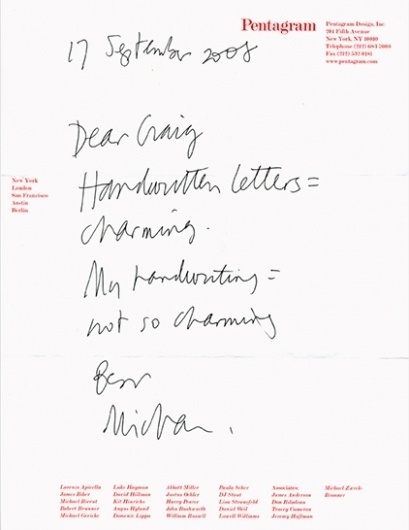 Pentagram
Pentagram Design, Inc.
204 Fifth Avenue
New York, NY 10010
Telephone (212) 683 7000
Fax (212) 532 0181
www.pentagram.com
17 September 2008
Dear Craig
Handwritten letters =
charming.
My handwriting =
not so charming
Best
Michael.
New York
London
San Francisco
Austin
Berlin
Lorenzo Apicella
James Biber
Michael Bierut
Robert Brunner
Michael Gericke
Luke Hayman
David Hillman
Kit Hinrichs
Angus Hyland
Domenic Lippa
Abbott Miller
Justus Oehler
Harry Pearce
John Rushworth
William Russell
Paula Scher
DJ Stout
Lisa Strausfeld
Daniel Weil
Lowell Williams
Associates
James Anderson
Don Bilodeau
Tracey Cameron
Jeremy Hoffman
Michael Zweck-
Bronner